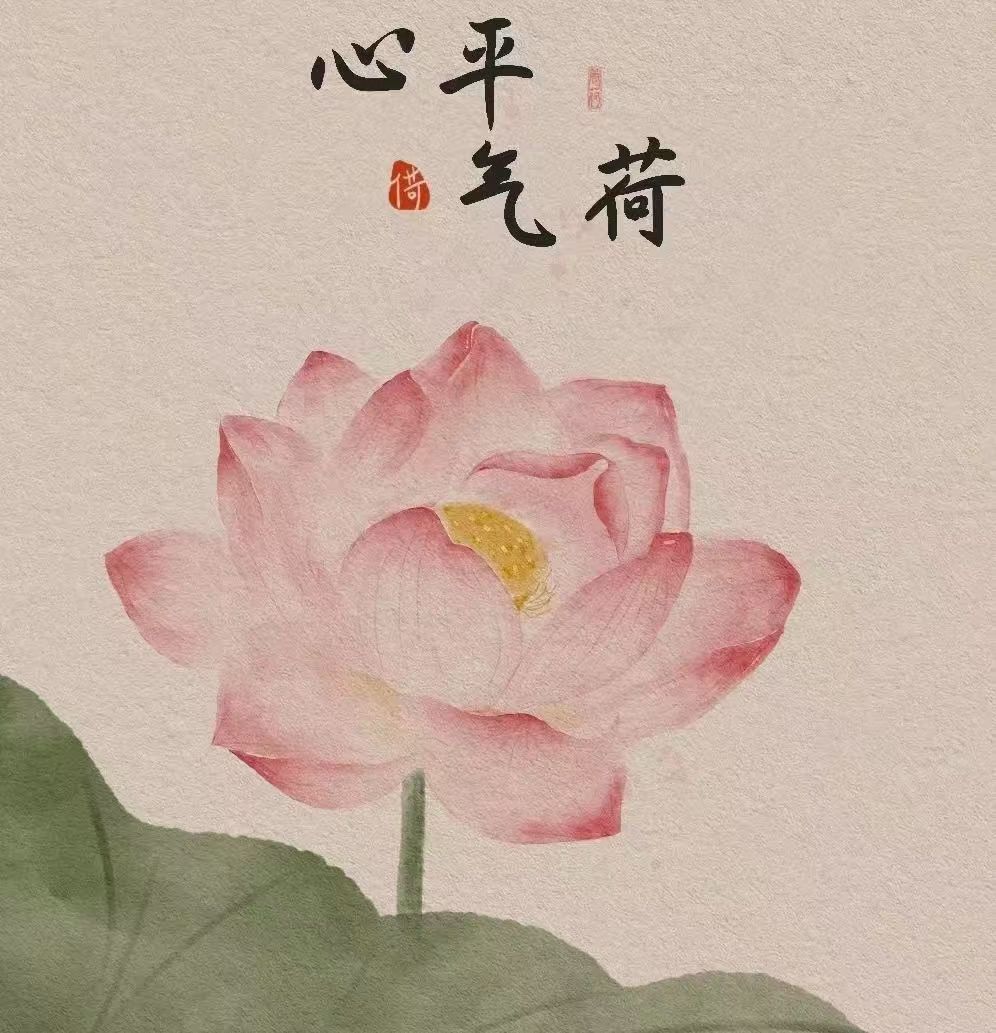 心平
气荷
荷